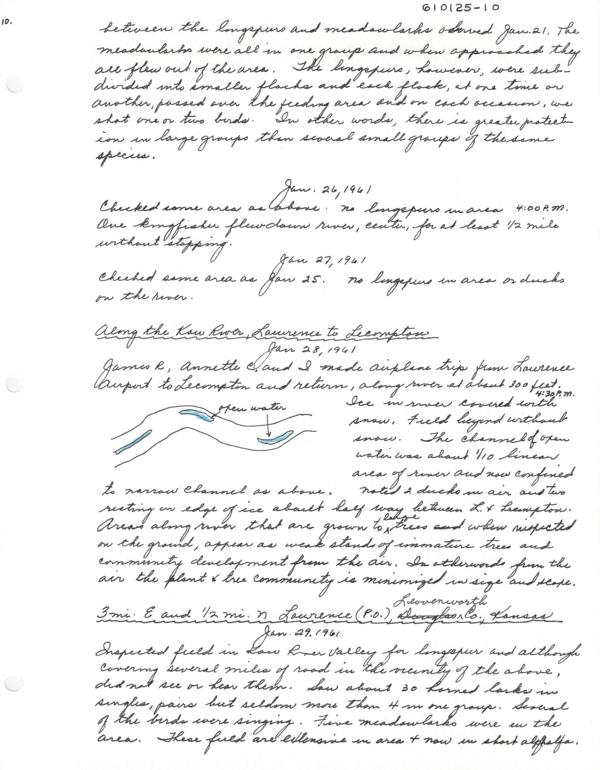 610125-10
10.
between the longspurs and meadowlarks observed Jan. 21. The
meadowlarks were all in one group and when approached they
all flew out of the area. The longspurs, however, were sub-
divided into smaller flocks and each flock, at one time or
another, passed over the feeding area and on each occasion, we
shot one or two birds. In other words, there is greater protect-
ion in large groups than several small groups of the same
species.
Jan. 26, 1961
Checked same area as above. No longspurs in area 4:00 P.M.
One kingfisher flew down river, center, for at least 1/2 mile
without stopping.
Jan 27, 1961
Checked same area as Jan 25. No longspurs in area or ducks
on the river.
Along the Kaw River, Lawrence to Lecompton
Jan 28, 1961
James R, Annette C, and I made airplane trip from Lawrence
Airport to Lecompton and return, along river at about 300 feet.
4:30 P.M.
open water
Ice in river covered with
snow. Field beyond without
snow. The channel of open
water was about 1/10 linear
area of river and now confined
to narrow channel as above. Noted 2 ducks in air and two
resting on edge of ice about half way between L & Lecompton.
large
Areas along river that are grown to trees and when inspected
on the ground, appear as weak stands of immature trees and
community development from the air. In otherwords from the
air the plant & tree community is minimized in size and scope.
Leavenworth
3 mi. E and 1/2 mi. N Lawrence (P.O.), Douglas Co., Kansas
Jan. 29, 1961
Inspected field in Kaw River Valley for longspur and although
covering several miles of road in the vicinity of the above,
did not see or hear them. Saw about 30 horned larks in
singles, pairs but seldom more than 4 in one group. Several
of the birds were singing. Five meadowlarks were in the
area. These field are extensive in area & now in short alfalfa.